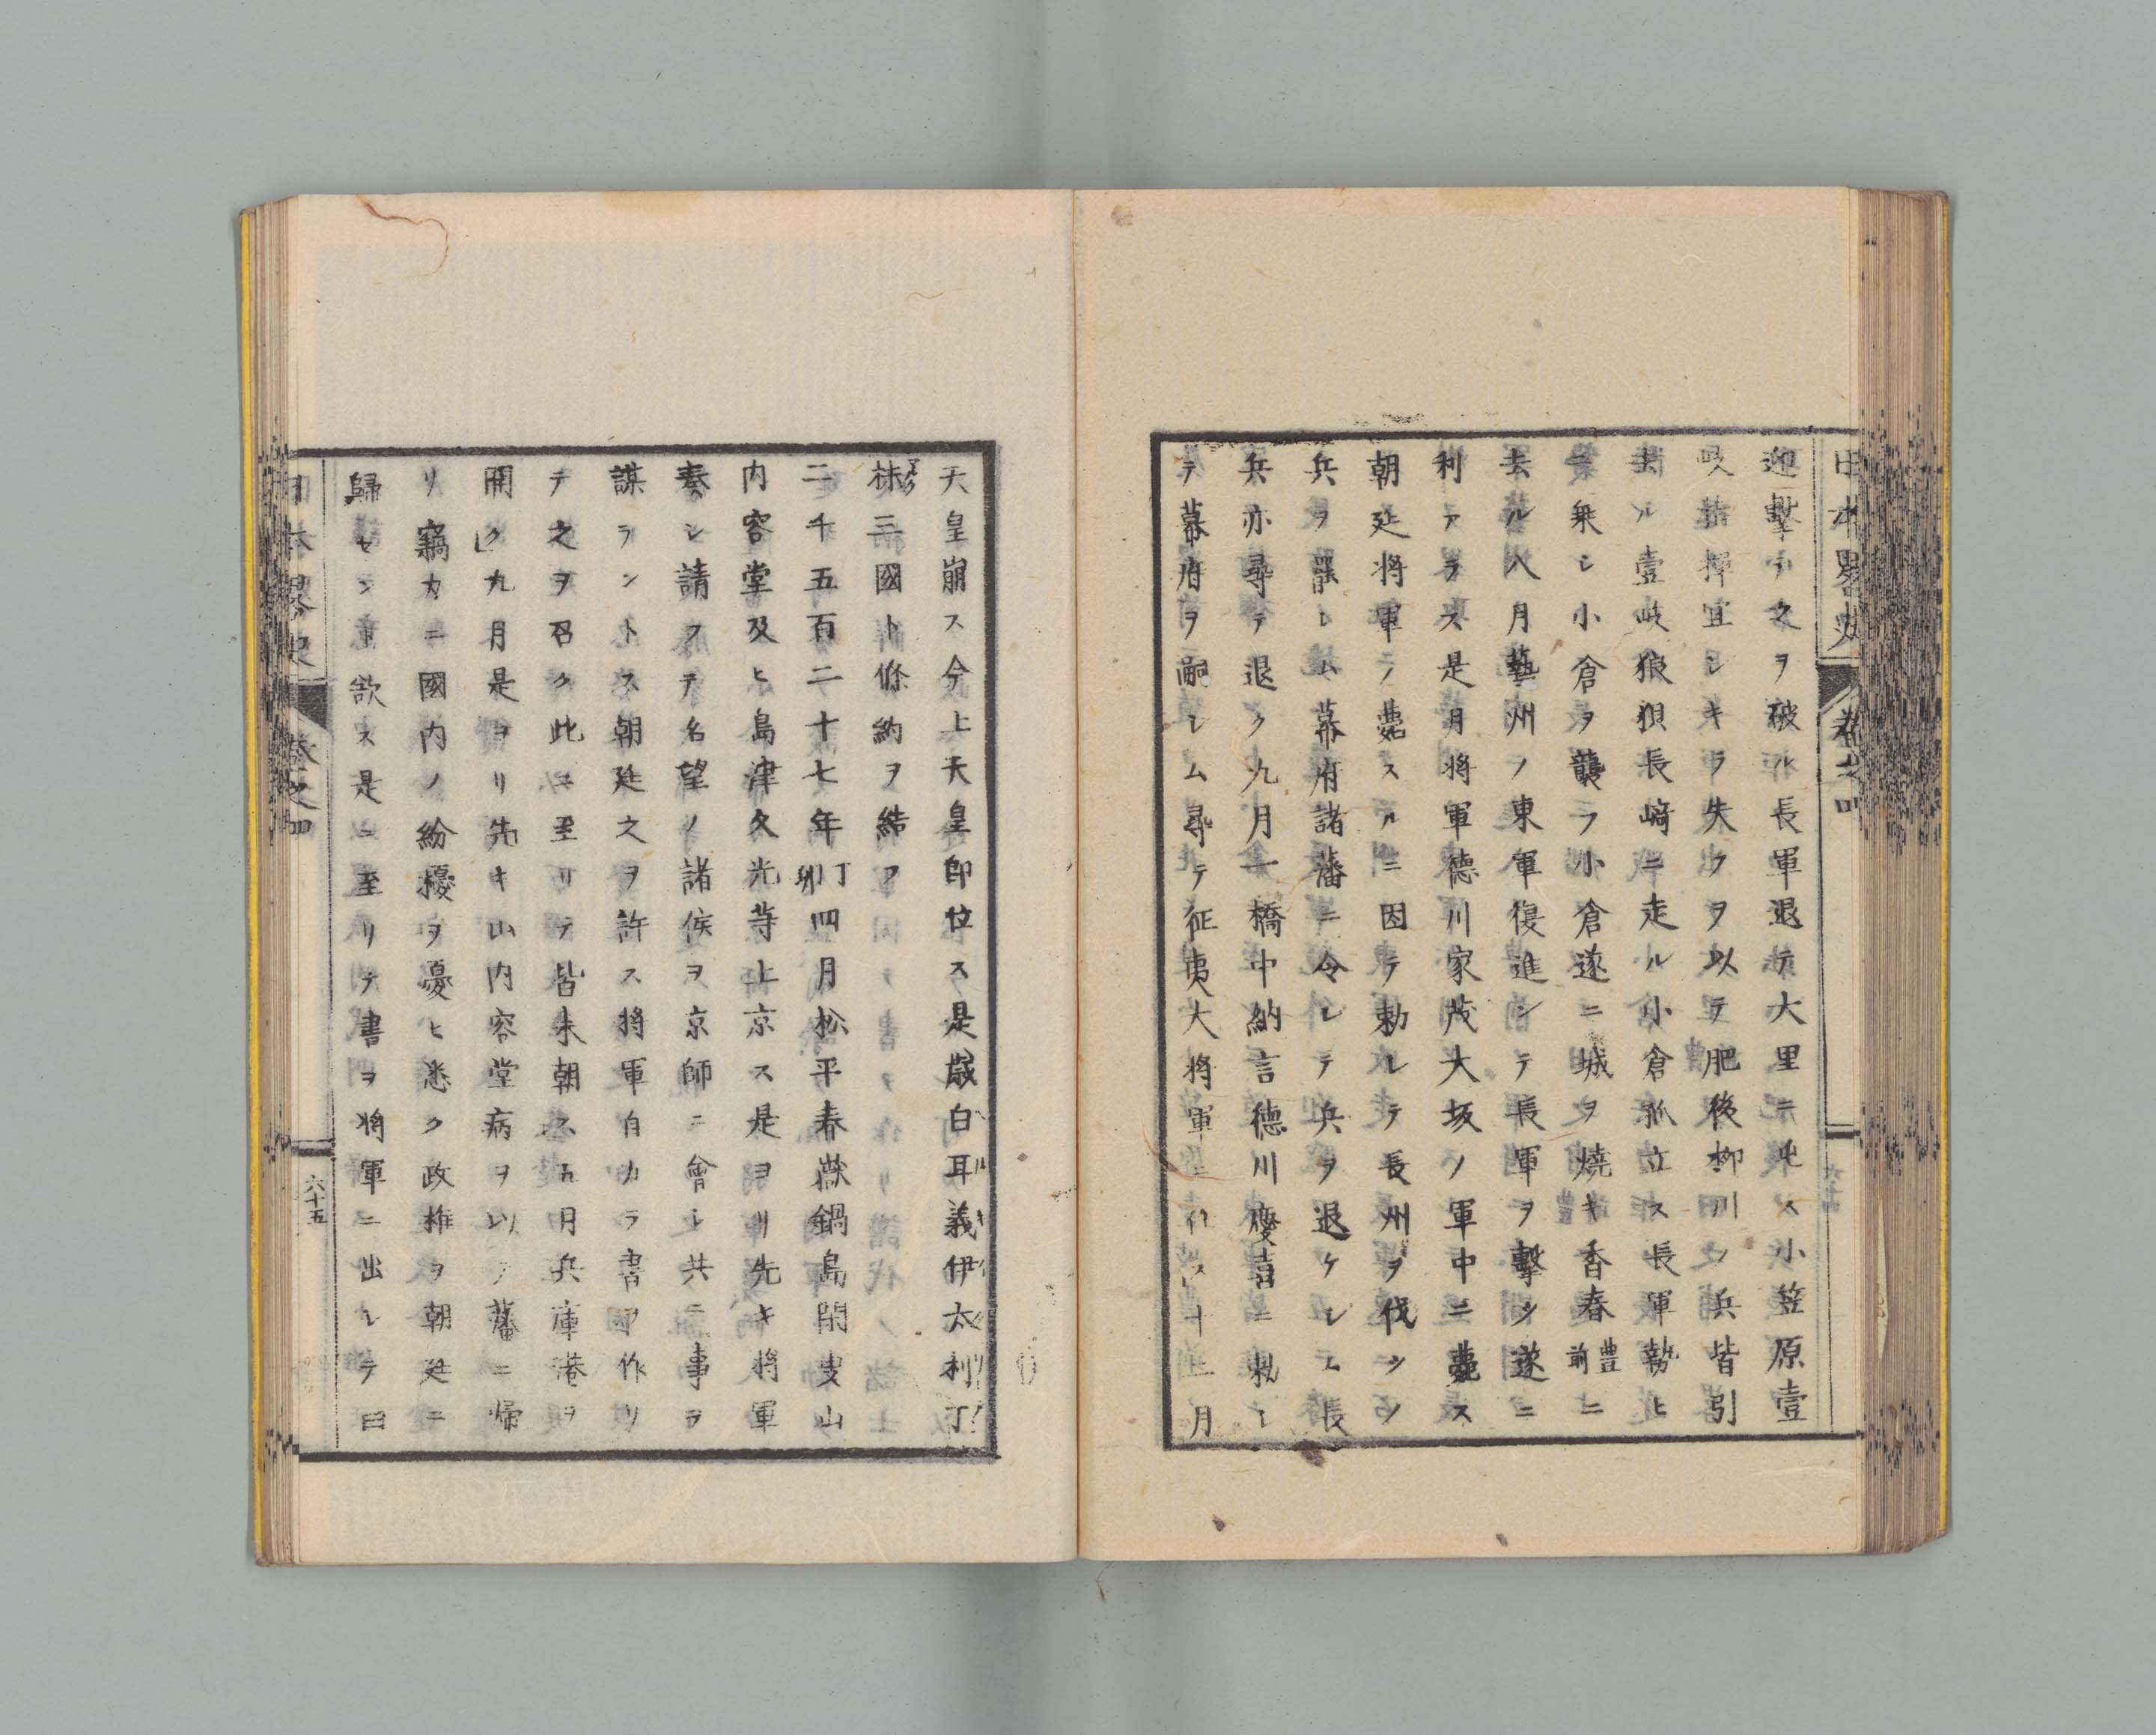 日本畧史 卷之四
迎擊テ之ヲ破ル長軍退テ大里ニ屯ス小笠原壹
岐指揮宜シキヲ失フヲ以テ肥後柳川ノ兵皆引
去ル壹岐狼狽長﨑ニ走ル小倉孤立ス長軍勢ヒ
ニ乗シ小倉ヲ襲フ小倉遂ニ城ヲ燒キ香春豊前ニ
去ル八月藝州ノ東軍復進シテ長軍ヲ擊ツ遂ニ
利アラス是月將軍德川家茂大坂ノ軍中ニ薨ス
朝延將軍ノ薨スルニ因テ勅レテ長州ヲ伐ツノ
兵ヲ罷レム幕府諸藩ニ令レテ兵ヲ退ケレム長
兵亦尋テ退ク九月一橋中納言德川慶喜ニ勅レ
テ幕府ヲ嗣レム尋テ征夷大將軍ニ任ス十二月
天皇崩ス今上天皇即位ス是歲白耳義伊太利丁
抹三國ト條約ヲ結フ
二千五百二十七年丁卯四月松平春嶽鍋島閑叟山
内容堂及ヒ島津久光等上京ス是ヨリ先キ將軍
奏シ請フテ名望ノ諸侯ヲ京師ニ會シ共ニ事ヲ
謀ラントス朝延之ヲ許ス將軍自カラ書ヲ作リ
テ之ヲ召ク此ニ至リテ皆来朝ス五月兵庫港ヲ
開ク九月是ヨリ先キ山内容堂病ヲ以テ藩ニ歸
リ竊カニ國内ノ紛擾ヲ憂ヒ悉ク政権ヲ朝延ニ
歸セント欲ス是ニ至リテ書ヲ將軍ニ出レテ曰
日本畧史 卷之四 六十五